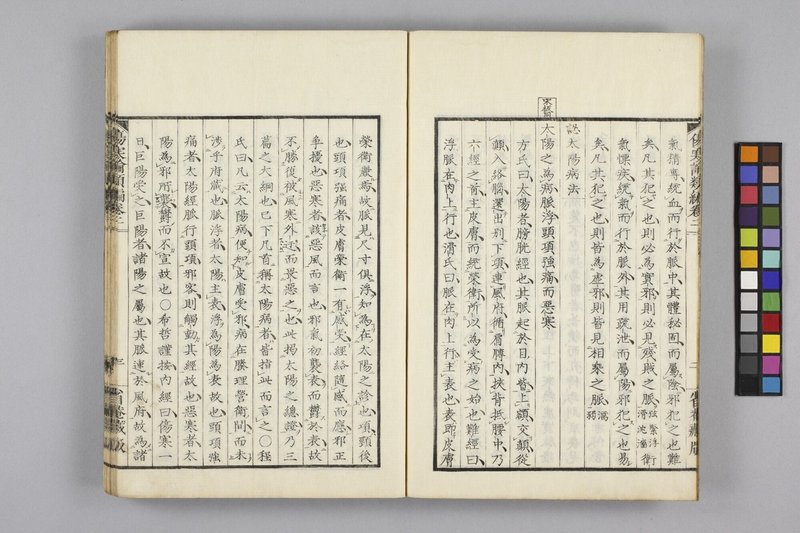 氣猶專統血而行於脈中其體秘固而屬陰邪犯之也難
矣凡其犯之也則必為實邪則必見殘賊之脈弦緊浮
滑沈濇
氣慓疾統氣而行於脈外其用疏泄而屬陽邪犯之也易
矣凡其犯之也則皆為虛邪則皆見相乘之脈
太陽病法
宋版
太陽之為病脈浮頭項強痛而惡寒
方氏曰太陽者膀胱經也其脈起於目內眥上額交巔從
巔入絡腦還出別下項連風府循肩膊內挾脊抵腰中乃
六經之首主皮膚而統榮衛所以為受病之始也難經曰
浮脈在肉上行也滑氏曰脈在肉上行主表也表即皮膚
傷寒論類編卷二
榮衛麗焉故脈見尺寸俱浮知為在太陽之診也項頸後
也頭項強痛者皮膚榮衛一有感受經絡隨感而應邪正
爭擾也惡寒者該惡風而言也邪氣初襲表而鬱於表故
不勝復被風寒外迕而畏惡之也此揭太陽之總證乃三
篇之大綱也已下凡首稱太陽病者皆指此而言之○程
氏曰凡云太陽病便知皮膚受邪病在腠理營衛間而未
涉乎府藏也脈浮者太陽主表浮為陽為表故也頭項強
痛者太陽經脈行頭項邪客則觸動其經故也惡寒者太
陽為邪所襲鬱而不宣故也○希哲謹按內經曰傷寒一
日巨陽受之巨陽者諸陽之屬也其脈連於風府故為諸